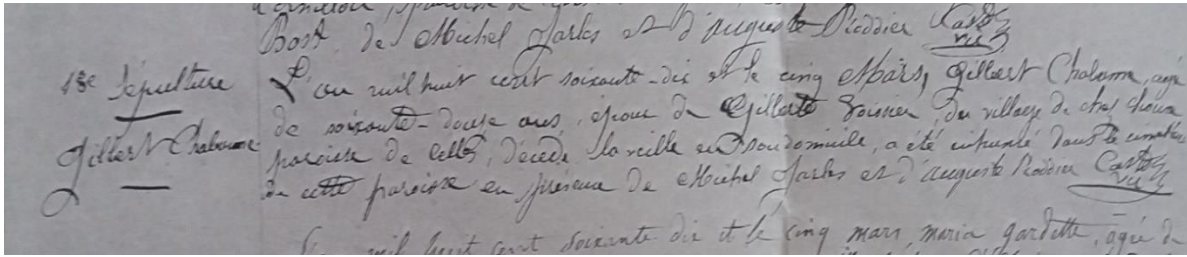 Bost, de Michel Jarles et d'auguste Rioddier
13e Sépulture
Gilbert Chabanne
L'an mil huit cent soixante-dix et le cinq Mars, Gilbert Chabanne, agé
de soixante-douze ans, époux de Gilberte Soissier, du village de chez
paroisse de Celle, décédé la veille en son domicile, a été inhumé dans le cimetière
de cette paroisse en présence de Michel Jarles et d'auguste Rioddier
L'an mil huit cent soixante dix et le cinq mars, maria gardette, agée de